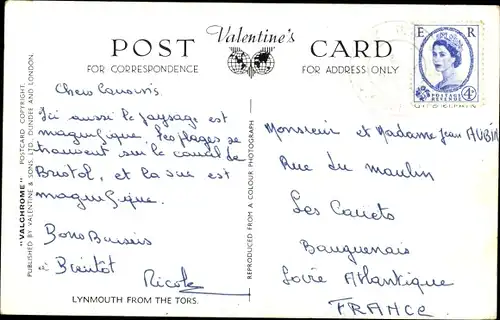 Valentine's
POST CARD
FOR CORRESPONDENCE
FOR ADDRESS ONLY
E R
POSTAGE
REVENUE
4D
"VALCHROME" POSTCARD COPYRIGHT.
PUBLISHED BY VALENTINE & SONS, LTD., DUNDEE AND LONDON.
Chers Cousins.
Ici aussi le paysage est
magnifique. Les plages se
trouvent sur le canal de
Bristol, et la vue est
magnifique.
Bons Baisers
à Bientôt
Nicole
LYNMOUTH FROM THE TORS.
REPRODUCED FROM A COLOUR PHOTOGRAPH
Monsieur et Madame Jean AUBIN
Rue du moulin
Les Couëts
Bouguenais
Loire Atlantique
FRANCE.